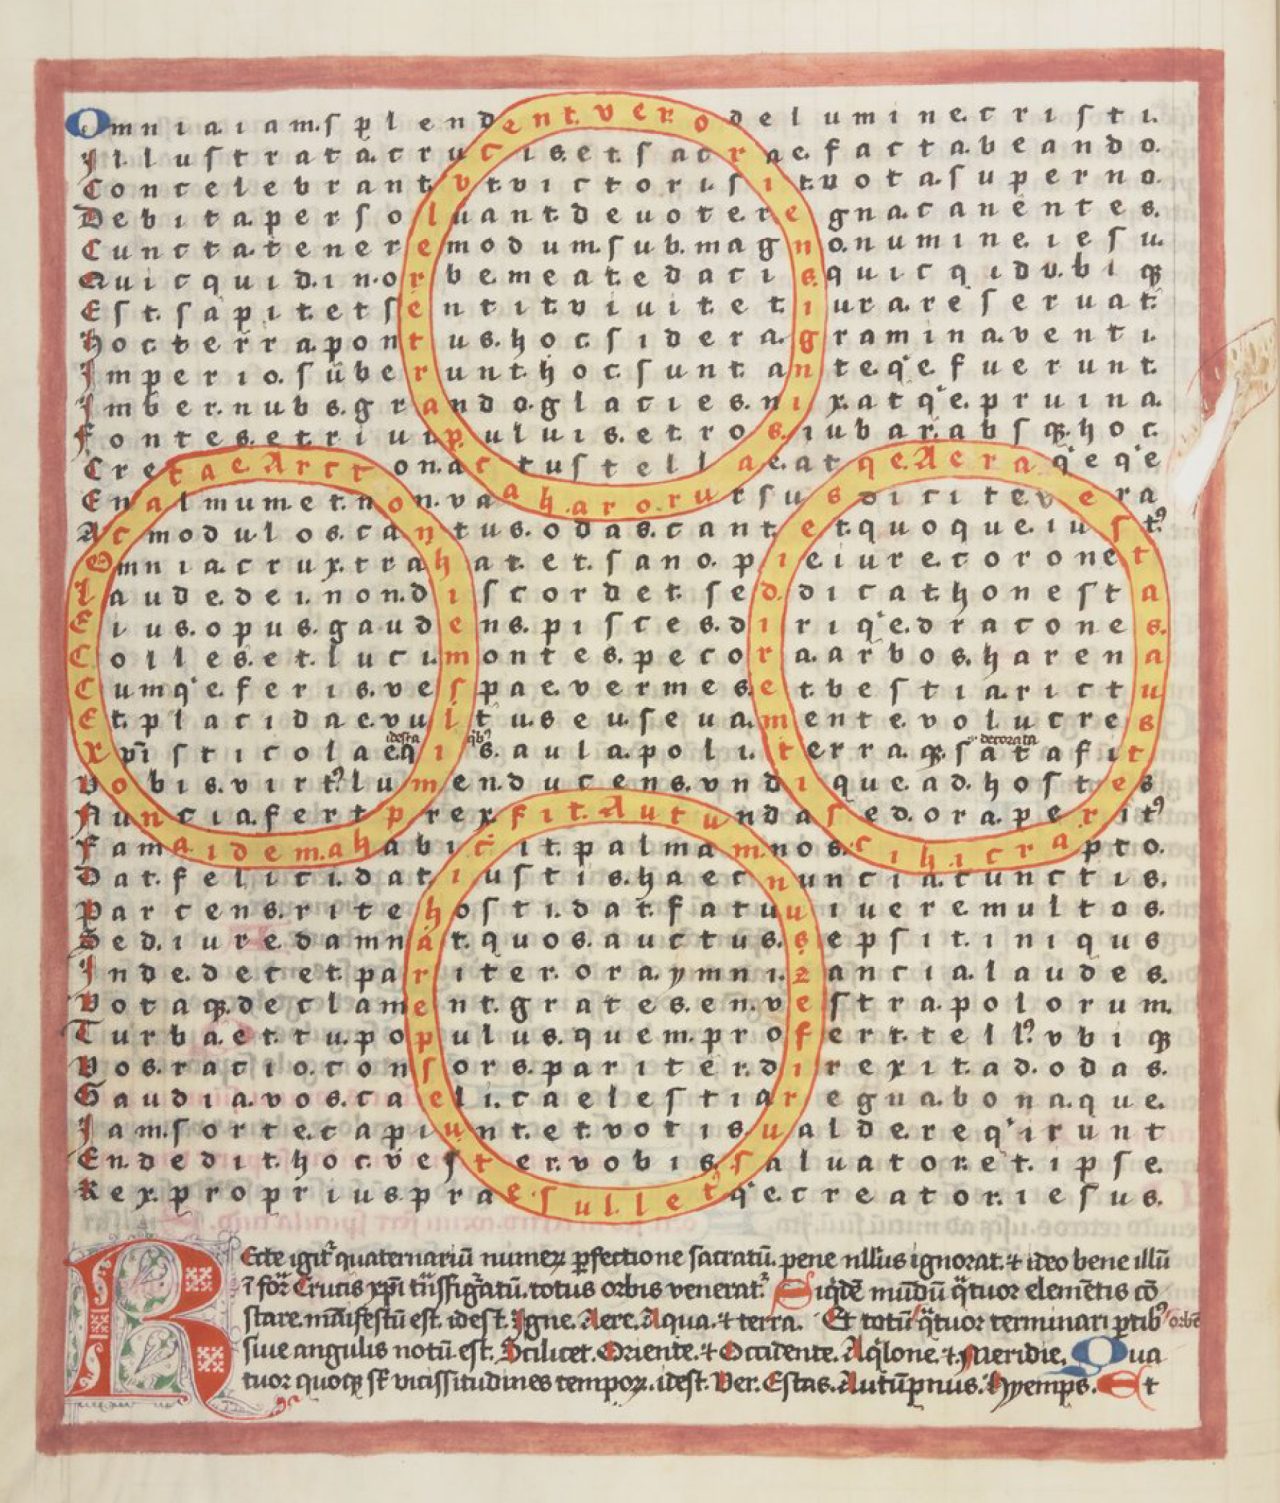 Omnia iam splendent vero de lumine cristi.
Illustrata crucis et sacrae facta beando.
Concelebrant vt victoris it vota superno.
Debita persoluant deuote regna canentes.
Cuncta tenere modum sub magno numine iesu.
Quicquid in orbe meat e daci squicqidvbiqꝫ
Est sapit et sentit viuit et iura reseruat
Hoc terra pontus hoc sidera gramina venti.
Imperio sube runt hoc sunt anteqe fuerunt.
Imber nubs grando glacies nix atqe pruina.
Fontes et riui puluis et ros iubar abs qꝫ hoc.
Creta e Arcton ac tu stella e atqe Aera qeqe
En almum et non va a harorursus diciteveera
Ac modulos cantus odas cante et quoque iust⁹
Omnia crux trahat et sano pie iure coronet
Laude dei non discordet sed dicat honesta
Eius opus gaudens pisces diriqe dracones
Colles et luci montes pecora arbos harena
Cumqe feris vespae vermes et bestia rictu
Et placida e vultus eu seua mente volucres
Xpisticolae qi s. aula poli terra qꝫ sata fit
idest a qb⁹ decorata
Vobis virt⁹ lumen ducens vndique ad hostes
Nuncia fert prex fit Autunda sed ora perit⁹
Fama idem ahabicit palmam nos cihicrapto.
Dat felici dat iustis haec nuncia cunctis.
Parcens rite hosti dat fatu uiuere multos.
Sed iure damnat quos auctus sepsit iniqus
Inde decet pariter ora ymnizancia laudes.
Vota qꝫ declament grates en vestra polorum.
Turba et tu populus quem profert tell⁹ vbiqꝫ
Vos racio consors pariter direxit ad odas.
Gaudia vos caelica elestia regua bona que.
Iam sorte capiunt et votis ualde reqirunt
En dedit hoc vester vobis saluator et ipse.
Rex proprius praesul let⁹qe creator iesus.
Recte igit quaternariū numeꝝ ꝑfectione sacratū. pene nllus ignorat. ⁊ ideo bene illū
ī for Crucis xpi trāsfigatū. totus orbis venerat. Siqdē mūdū qtuor elemētis cō
stare. maifestū est. idest. Igne. Aere. Aqua. ⁊ terra. Et totū qtuor terminari ꝑtib⁹ orbē
siue angulis notū est. Scilicet. Oriente. ⁊ Occidente. Aqlone. ⁊ Meridie. Qua
tuor quoqꝫ st vicissitudines tempoꝝ. idest. Ver. Estas. Autūpnus. Hyemps. Et